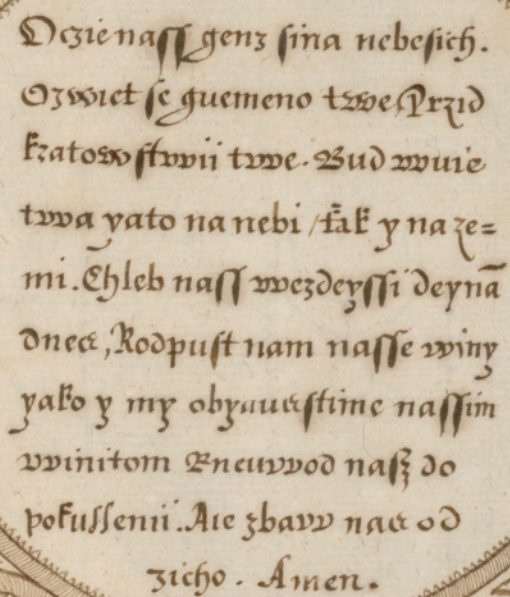 Oczie nass genz sina nebesich.
Ozwiet se guemeno twe, Przid
kratowstwii twe. Bud wuie
twa yato na nebi / tak y na ze=
mi. Chleb nass wezdeyssi deynā
dnes, Rodpust nam nasse winy
yako y my obyauestime nassim
winitom Rneuwod nasz do
pokussenii. Aie zbaw nas od
zicho. Amen.